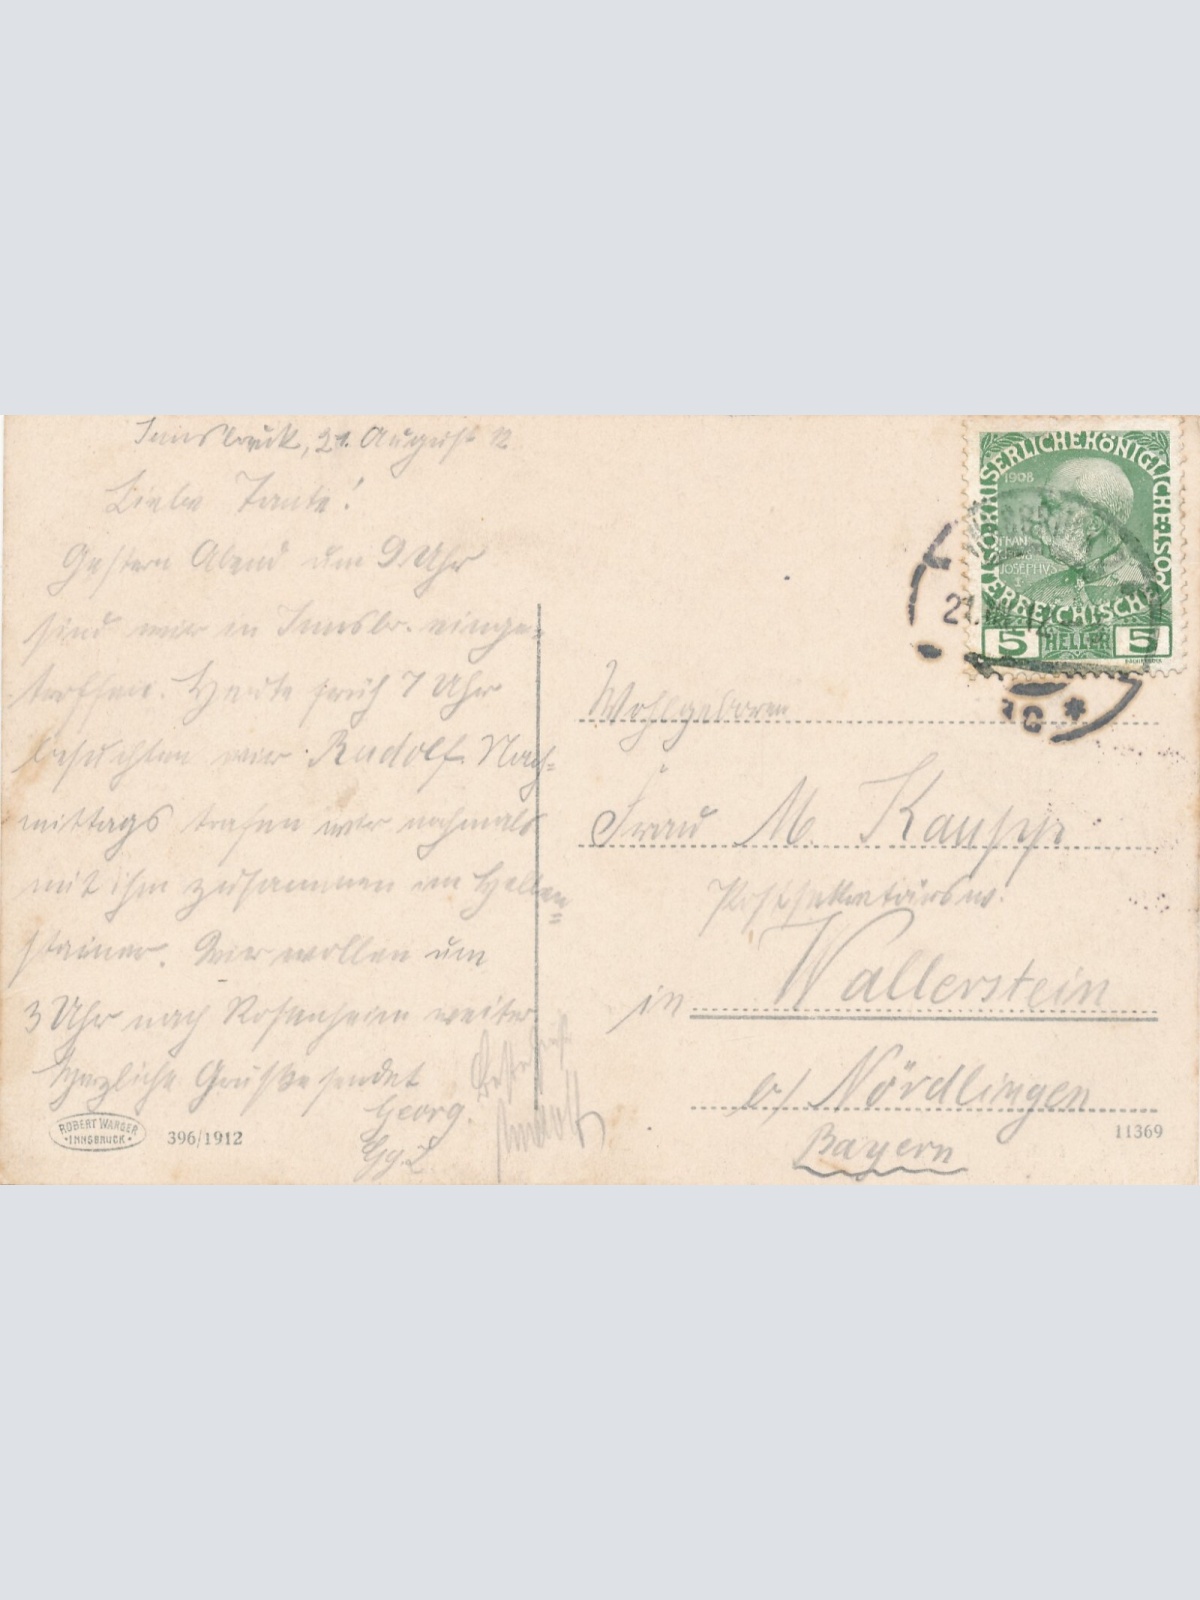 Innsbruck, 21. August 12
Liebe Tante!
Gestern Abend um 9 Uhr
sind wir in Innsbr. einge-
troffen. Heute früh 7 Uhr
besuchten wir Rudolf. Nach=
mittags trafen wir nochmals
mit ihm zusammen im
Wir wollen um
3 Uhr nach Rosenheim weiter
Herzliche Grüße sendet
Georg.
Rudolf
ROBERT WARGER
INNSBRUCK
396/1912
KAISERLICHE KÖNIGLICHE ÖSTERREICHISCHE POST
1908
FRANCISCUS
JOSEPHVS
I
5 HELLER 5
21.
1C *
Wohlgeboren
Frau M. Kauppe
Postsekretärsw.
in Wallerstein
b/ Nördlingen
Bayern
11369